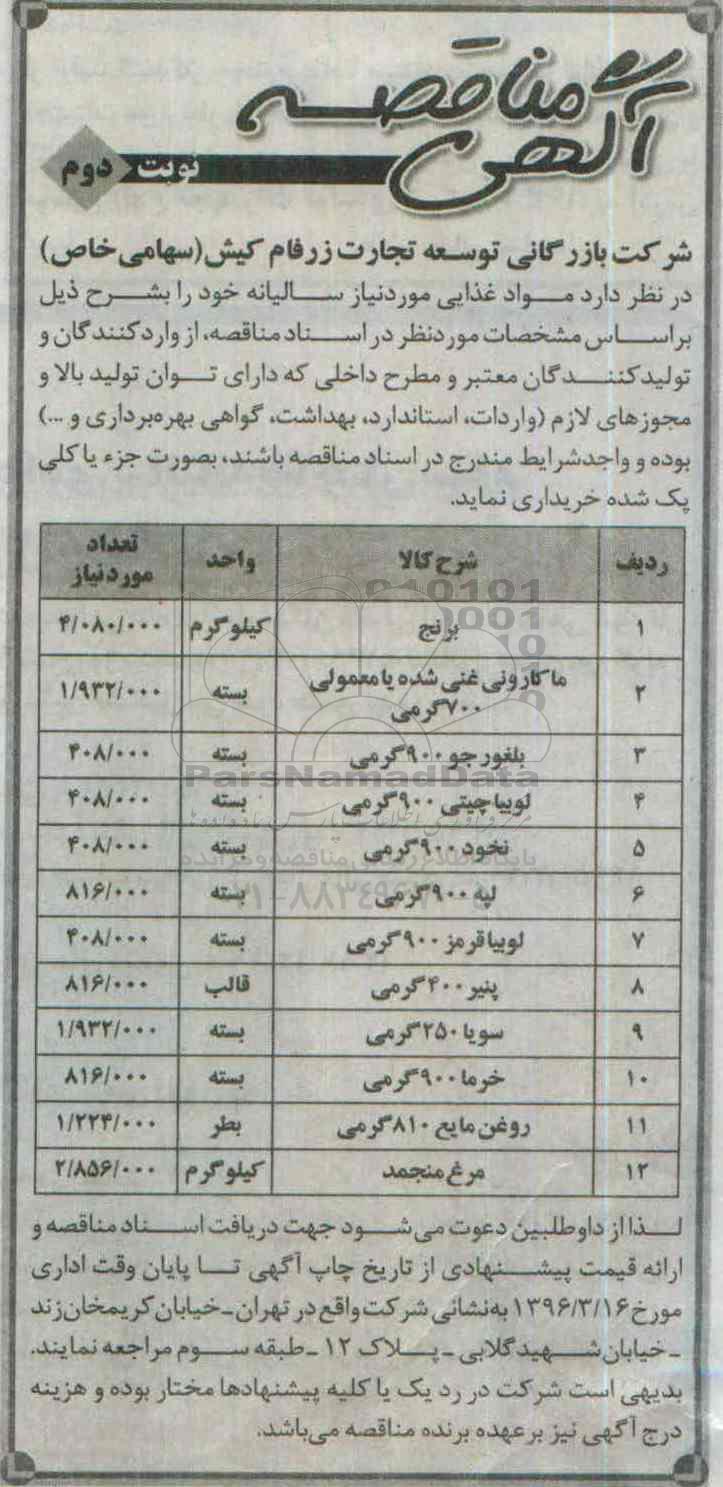 آگهی مناقصه
نوبت دوم
شرکت بازرگانی توسعه تجارت زرفام کیش (سهامی خاص)
در نظر دارد مواد غذایی موردنیاز سالیانه خود را بشرح ذیل
براساس مشخصات موردنظر در اسناد مناقصه، از واردکنندگان و
تولیدکنندگان معتبر و مطرح داخلی که دارای توان تولید بالا و
مجوزهای لازم (واردات، استاندارد، بهداشت، گواهی بهره‌برداری و ...)
بوده و واجدشرایط مندرج در اسناد مناقصه باشند، بصورت جزء یا کلی
پک شده خریداری نماید.
ردیف شرح کالا واحد تعداد موردنیاز
۱ برنج کیلوگرم ۴/۰۸۰/۰۰۰
۲ ماکارونی غنی شده یا معمولی ۷۰۰گرمی بسته ۱/۹۳۲/۰۰۰
۳ بلغور جو ۹۰۰گرمی بسته ۴۰۸/۰۰۰
۴ لوبیا چیتی ۹۰۰گرمی بسته ۴۰۸/۰۰۰
۵ نخود ۹۰۰گرمی بسته ۴۰۸/۰۰۰
۶ لپه ۹۰۰گرمی بسته ۸۱۶/۰۰۰
۷ لوبیا قرمز ۹۰۰گرمی بسته ۴۰۸/۰۰۰
۸ پنیر ۴۰۰گرمی قالب ۸۱۶/۰۰۰
۹ سویا ۲۵۰گرمی بسته ۱/۹۳۲/۰۰۰
۱۰ خرما ۹۰۰گرمی بسته ۸۱۶/۰۰۰
۱۱ روغن مایع ۸۱۰گرمی بطر ۱/۲۲۴/۰۰۰
۱۲ مرغ منجمد کیلوگرم ۲/۸۵۶/۰۰۰
ParsNamadData
لذا از داوطلبین دعوت می‌شود جهت دریافت اسناد مناقصه و
ارائه قیمت پیشنهادی از تاریخ چاپ آگهی تا پایان وقت اداری
مورخ ۱۳۹۶/۳/۱۶ به‌نشانی شرکت واقع در تهران-خیابان کریمخان زند
-خیابان شهید گلابی-پلاک ۱۲-طبقه سوم مراجعه نمایند.
بدیهی است شرکت در رد یک یا کلیه پیشنهادها مختار بوده و هزینه
درج آگهی نیز برعهده برنده مناقصه می‌باشد.